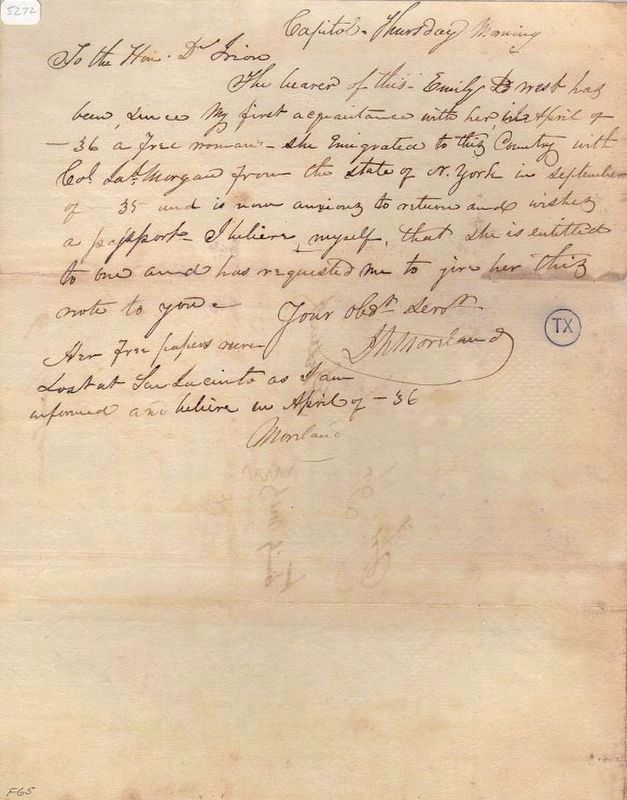 5272
Capitol. Thursday Morning
To the Hon. Dr Irion
The bearer of this - Emily D West has
been, since my first acquaintance with her, in April of
- 36 a Free woman - she Emigrated to this Country with
Col. Jas. Morgan from the state of N. York in september
of 35 and is now anxious to return and wishes
a passport - I believe myself, that she is entitled
to one and has requested me to give her this
note to you -
Your obdt Servt
I N Moreland
Her Free papers were
Lost at San Jacinto as I am
informed and believe in April of - 36
Moreland
TX
F65